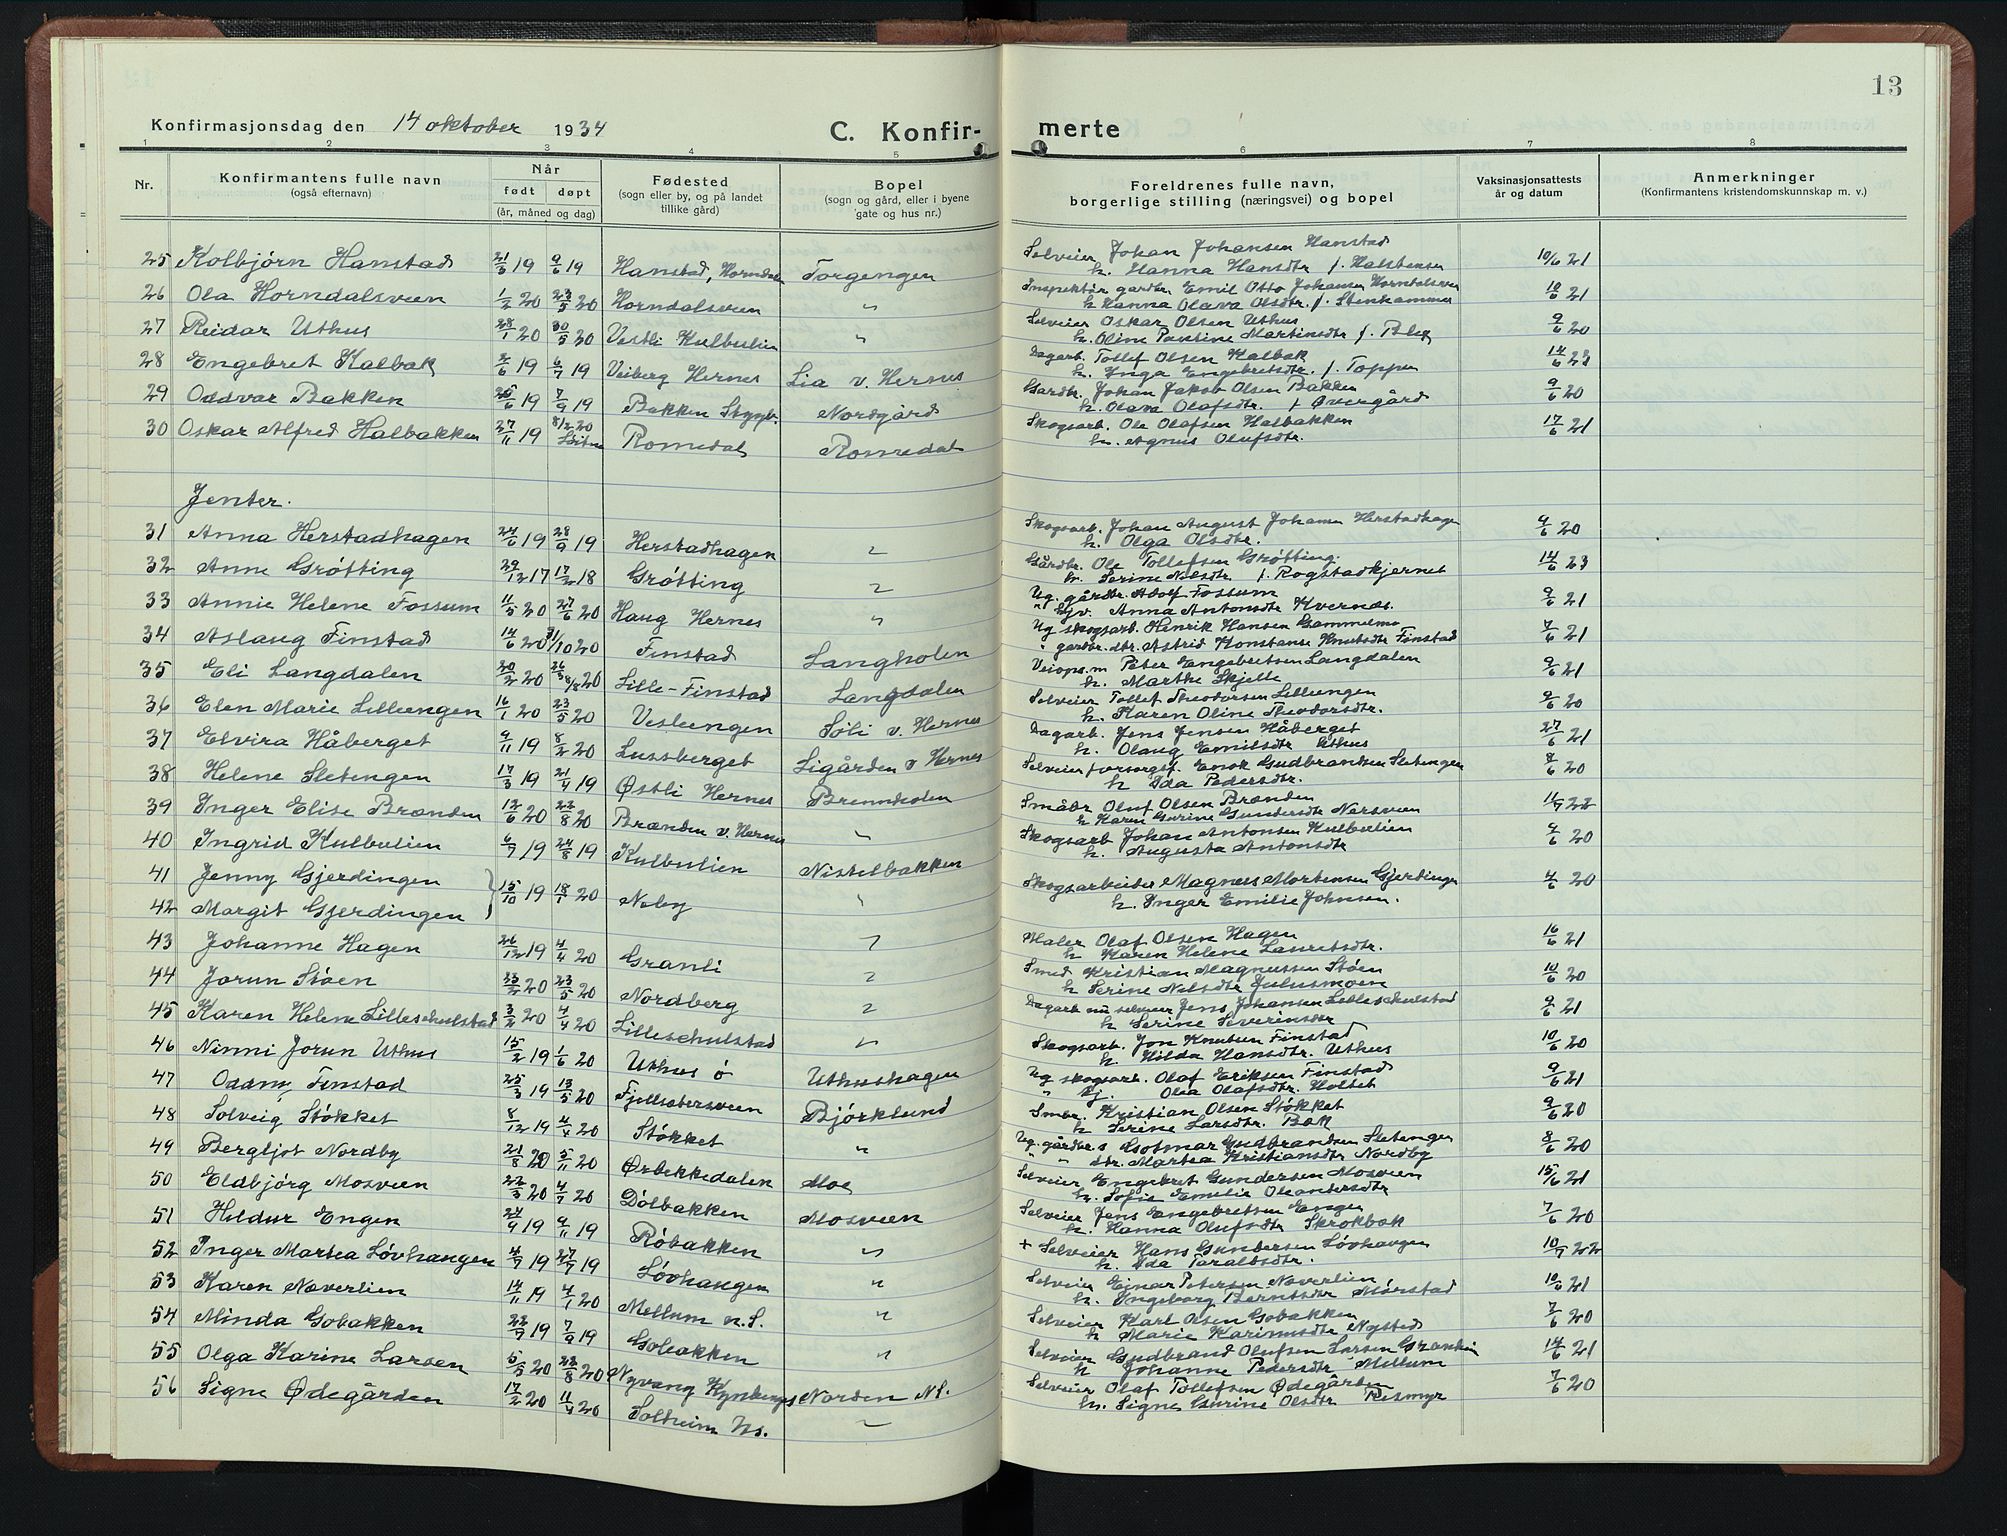 13
Konfirmasjonsdag den 14 oktober 1934
C. Konfir-merte
1 2 3 4 5 6 7 8
Nr.
Konfirmantens fulle navn
(også efternavn)
Når
født døpt
(år, måned og dag)
Fødested
(sogn eller by, og på landet
tillike gård)
Bopel
(sogn og gård, eller i byene
gate og hus nr.)
Foreldrenes fulle navn,
borgerlige stilling (næringsvei) og bopel
Vaksinasjonsattests
år og datum
Anmerkninger
(Konfirmantens kristendomskunnskap m. v.)
25 Kolbjørn Hanstad 9/6 19 Hanstad, Horndalen Torgengen Selveier Johan Johansen Hanstad 10/6 21
h. Hanna Hansdtr f. Halstensen
26 Ola Horndalsveen 1/2 20 23/5 20 Horndalsveen " Inspektør gardbr. Emil Otto Johansen Horndalsveen 10/6 21
h Hanna Olava Olsdtr. f. Stenhammer
27 Reidar Uthus 28/1 20 30/5 20 Vestli Kulbulien " Selveier Oskar Olsen Uthus 9/6 20
h. Oline Pauline Martinsdtr f.
28 Engebret Kalbak 2/6 19 6/7 19 Veiberg Hernes Lia v. Hernes Dagarb. Tollef Olsen Kalbak 14/6 23
h. Inga Engebretsdtr. f. Toppen
29 Oddvar Bakken 25/6 19 7/9 19 Bakken Nordgård Gardbr. Johan Jakob Olsen Bakken 9/6 20
h. Olava Olafsdtr. f Øvergård
30 Oskar Alfred Halbakken 27/11 19 8/2 20 Romedal Romedal Skogsarb. Ole Olafsen Halbakken 17/6 21
h. Agnus Olufsdtr.
Jenter.
31 Anna Herstadhagen 24/6 19 28/9 19 Herstadhagen " Skogsarb. Johan August Johansen Herstadhagen 9/6 20
h. Olga Olsdtr.
32 Anne Grøtting 29/12 17 17/2 18 Grøtting " Gårdbr. Ole Tollefsen Grøtting. 14/6 23
h. Serine Nelsdtr f. Rogstadkjernet
33 Annie Helene Fossum 11/5 20 27/6 20 Haug Hernes " Ug. gårdbr. Adolf Fossum 9/6 21
" Gjv. Anna Antonsdtr Kvernæs.
34 Aslaug Finstad 14/6 20 31/10 20 Finstad Langholen Ug skogsarb. Henrik Hansen Gammelmo 7/6 21
" gardbr. dtr. Astrid Konstanse Knutsdtr Finstad
35 Eli Langdalen 20/2 20 8/8 20 Lille-Finstad Langdalen Veiops.m Peter Engebretsen Langdalen 9/6 21
h. Marthe Skjelle
36 Elen Marie Lilleengen 16/1 20 23/5 20 Vesleengen Søli v. Hernes Selveier Tollef Theodorsen Lilleengen 9/6 20
h. Karen Oline Theodorsdtr.
37 Elvira Håberget 9/11 19 8/2 20 Lussberget Ligården v Hernes Dagarb. Jens Jensen Håberget 27/6 21
h. Olaug Emilsdtr Uthus
38 Helene Sletengen 17/3 19 21/4 19 Østli Hernes Brennholen Selveier forsorgsf. Enok Gudbrandsen Sletengen 8/6 20
h Ida Pedersdtr.
39 Inger Elise Brænden 12/6 20 22/8 20 Brænden v. Hernes " Småbr Oluf Olsen Brænden 11/7 22
h Karen Gurine Gundersdtr Nersveen
40 Ingrid Kulbulien 6/7 19 24/8 19 Kulbulien Nistelbakken Skogsarb Johan Antonsen Kulbulien 9/6 20
h. Augusta Antonsdtr
41 Jenny Gjerdingen
42 Margit Gjerdingen 15/10 19 18/1 20 Noby " Skogsarbeider Magnus Mortensen Gjerdingen 4/6 20
h. Inger Emilie Johnsen.
43 Johanne Hagen 26/12 19 4/4 20 Granli " Maler Olaf Olsen Hagen 16/6 21
h Karen Helene Lauretsdtr.
44 Jorun Støen 25/2 20 23/5 20 Nordberg " Smed Kristian Magnussen Støen 10/6 20
h Serine Nelsdtr Julusmoen
45 Karen Helene Lilleschulstad 3/2 20 4/4 20 Lilleschulstad " Dagarb nu selveier Jens Johansen Lilleschulstad 9/6 21
h Serine Severinsdtr
46 Ninni Jorun Uthus 15/2 19 1/6 20 Uthus ø Uthushagen Skogsarb. Jon Knutsen Finstad 10/6 20
h. Hilda Hansdtr. Uthus
47 Oddny Finstad 25/3 19 13/5 20 Fjellsetersveen Bjørklund Ug skogsarb. Olaf Eriksen Finstad 9/6 21
" Gj. Olea Olafsdtr. Holtet
48 Solveig Støkket 8/12 19 4/4 20 Støkket " Smbr. Kristian Olsen Støkket 9/6 20
h Serine Larsdtr. Bak
49 Bergljot Nordby 21/8 20 5/11 20 Ørbekkedalen Moe Ug. gårdbr. s Gotmar Gudbrandsen Sletengen 8/6 20
" " dtr. Martea Kristiansdtr Nordby
50 Eldbjørg Mosveen 22/3 20 4/7 20 Dølbakken Mosveen Selveier Engebret Gundersen Mosveen 15/6 21
h. Sofie Emelie Oleandersdtr
51 Hildur Engen 24/9 19 9/11 19 Røbakken " Selveier Jens Engebretsen Engen 7/6 20
h. Hanna Olufsdtr Skrokbak
52 Inger Martea Løvhaugen 4/7 19 27/7 19 Løvhaugen " + Selveier Hans Gundersen Løvhaugen 10/7 22
h. Ida Taraldsdtr.
53 Karen Noverlien 14/11 19 4/1 20 Mellum n.S. " Selveier Einar Petersen Noverlien 10/6 21
h. Ingeborg Berntsdtr Mørstad
54 Minda Gobakken 22/7 19 7/9 19 Gobakken " Selveier Karl Olsen Gobakken 7/6 20
h Marie Karinusdtr Nysted
55 Olga Karine Larsen 5/5 20 22/8 20 Nyvang Kynbergs Norden NS. Selveier Gudbrand Olufsen Larsen 14/6 21
h Johanne Pedersdtr Mellum
56 Signe Ødegården 17/2 20 11/4 20 Solheim Ns. " Selveier Olaf Tollefsen Ødegården 7/6 20
h. Signe Gurine Olsdtr Resmyr